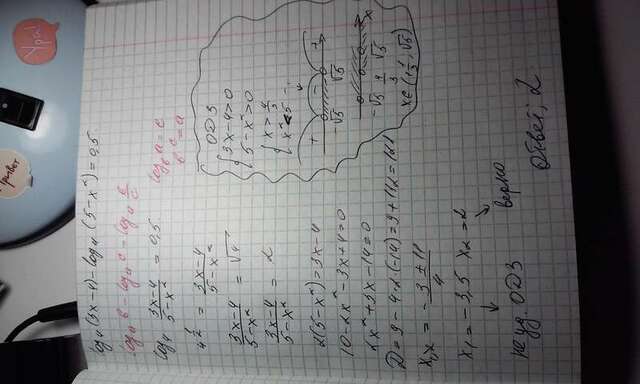 log₄(3x-4)-log₄(5-x²)=0,5
log_a b - log_a c = log_a b/c
log₄ (3x-4)/(5-x²) = 0,5
log_b a = c
b^c = a
4^(1/2) = (3x-4)/(5-x²)
(3x-4)/(5-x²) = √4
(3x-4)/(5-x²) = 2
2(5-x²)=3x-4
10-2x²-3x+4=0
2x²+3x-14=0
D=9-4·2·(-14)=9+112=121
x₁,₂ = (-3±11)/4
x₁=-3,5 x₂=2
не уд. ОДЗ верно
Ответ: 2
ОДЗ
{3x-4>0
{5-x²>0
{x>4/3
{x²<5
+ - +
-√5 √5
-√5 4/3 √5 x
x∈(1 1/3; √5)
Привет